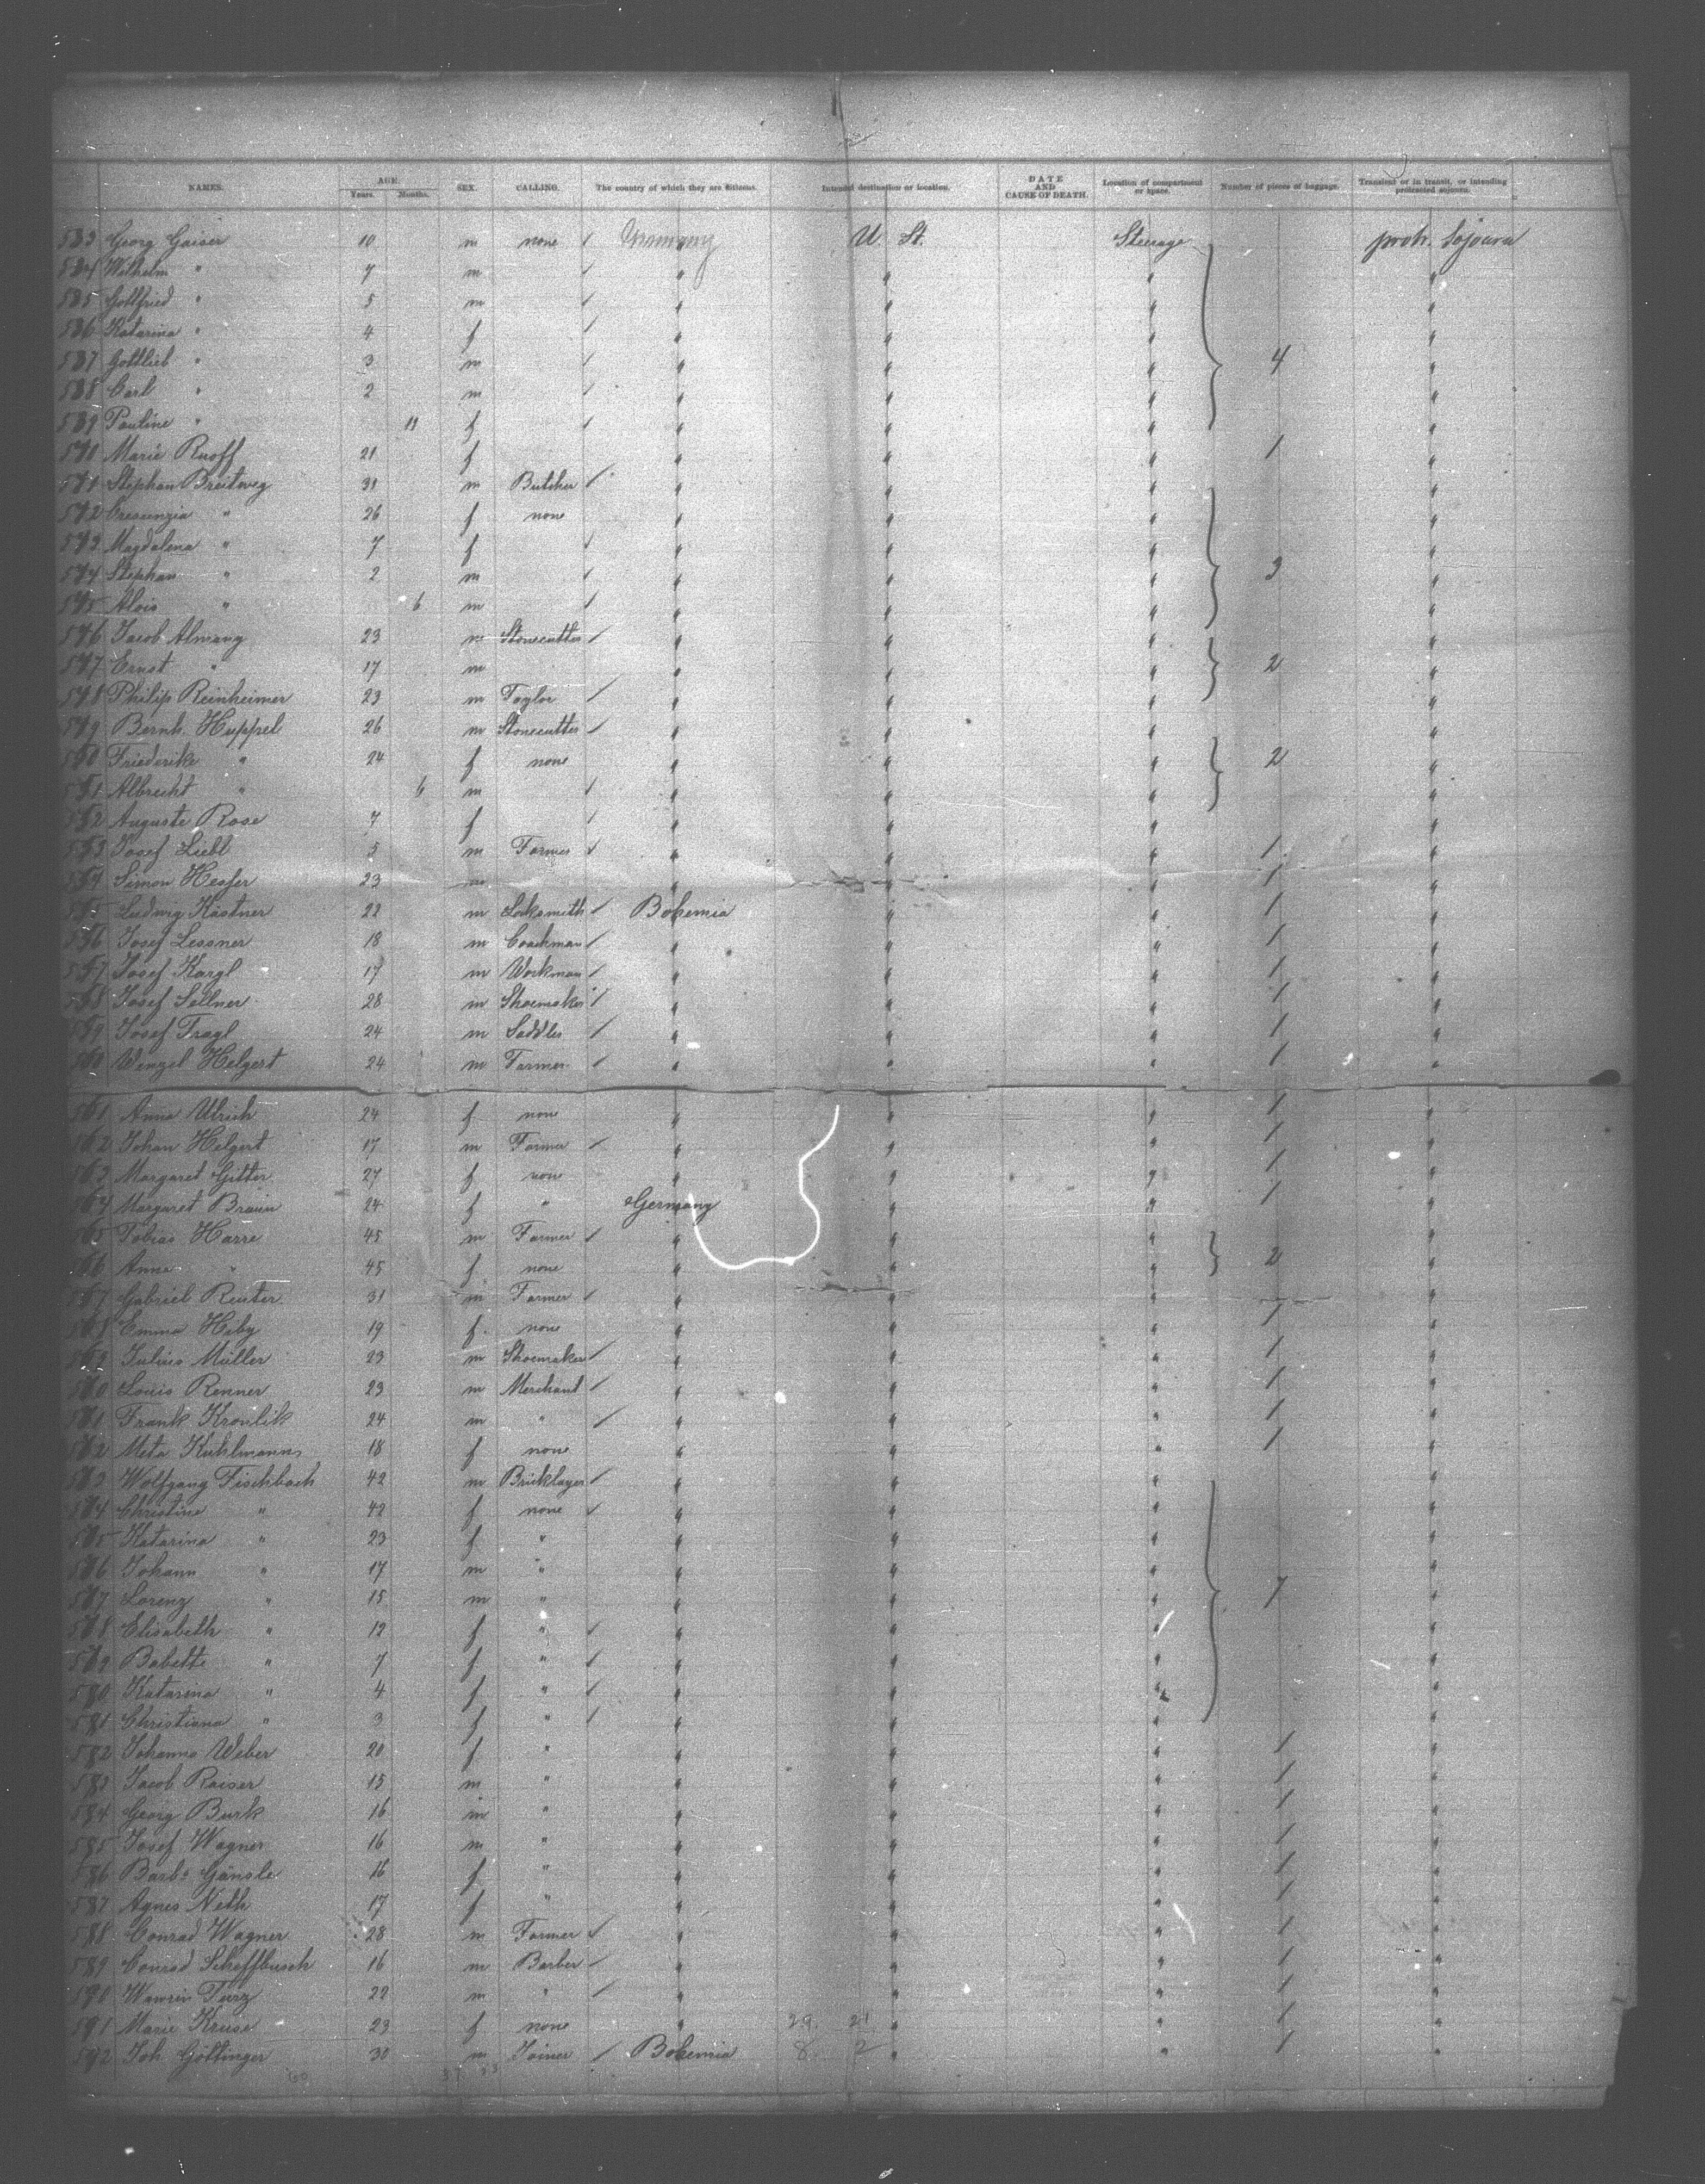 NAMES. AGE. Years. Months. SEX. CALLING. The country of which they are citizens. Intended destination or location. DATE AND CAUSE OF DEATH. Location of compartment or space. Number of pieces of baggage. Transient or in transit, or intending protracted sojourn.
533 Georg Gaiser 10 m none Germany U. St. Steerage protr. Sojourn
534 Wilhelm " 7 m " " " "
535 Gottfried " 5 m " " " "
536 Katarina " 4 f " " " "
537 Gottlieb " 3 m " " " 4 "
538 Carl " 2 m " " " "
539 Pauline " 11 f " " " "
540 Marie Ruoff 21 f " " " 1 "
541 Stephan Breitweg 31 m Butcher " " " "
542 Crescenzia " 26 f none " " " "
543 Magdalena " 7 f " " " "
544 Stephan " 2 m " " " 3 "
545 Alois " 6 m " " " "
546 Jacob Almang 23 m Stonecutter " " " "
547 Ernst " 17 m " " " 2 "
548 Philip Reinheimer 23 m Taylor " " " "
549 Bernh. Huppel 26 m Stonecutter " " " "
550 Friederike " 24 f none " " " 2 "
551 Albrecht " 6 m " " " "
552 Auguste Rose 7 f " " " "
553 Josef Liebl 5 m Farmer " " " 1 "
554 Simon Hesser 23 m " " " 1 "
555 Ludwig Kästner 22 m Locksmith Bohemia " " 1 "
556 Josef Lessner 18 m Coachman " " " 1 "
557 Josef Kargl 17 m Workman " " " 1 "
558 Josef Sellner 28 m Shoemaker " " " 1 "
559 Josef Fragl 24 m Saddler " " " 1 "
560 Wenzel Helgert 24 m Farmer " " " 1 "
561 Anna Ulrich 24 f none " " " 1 "
562 Johan Helgert 17 m Farmer " " " 1 "
563 Margaret Gitter 27 f none " " " 1 "
564 Margaret Braun 24 f " Germany " " 1 "
565 Tobias Harre 45 m Farmer " " " "
566 Anna " 45 f none " " " 2 "
567 Gabriel Reuter 31 m Farmer " " " "
568 Emma Hiby 19 f none " " " 1 "
569 Julius Müller 23 m Shoemaker " " " 1 "
570 Louis Renner 23 m Merchant " " " 1 "
571 Frank Kronlik 24 m " " " " 1 "
572 Meta Kuhlmann 18 f none " " " 1 "
573 Wolfgang Fischbach 42 m Bricklayer " " " "
574 Christine " 42 f none " " " "
575 Katarina " 23 f " " " " "
576 Johann " 17 m " " " " "
577 Lorenz " 15 m " " " " 7 "
578 Elisabeth " 12 f " " " " "
579 Babette " 7 f " " " " "
580 Katarina " 4 f " " " " "
581 Christiana " 3 f " " " " "
582 Johanna Weber 20 f " " " " 1 "
583 Jacob Raiser 15 m " " " " 1 "
584 Georg Burk 16 m " " " " 1 "
585 Josef Wagner 16 m " " " " 1 "
586 Barba Gänsle 16 f " " " " 1 "
587 Agnes Neth 17 f " " " " 1 "
588 Conrad Wagner 28 m Farmer " " " 1 "
589 Conrad Schaffbusch 16 m Barber " " " 1 "
590 Turz 22 m " " " " 1 "
591 Marie Kruse 23 f none " " " 1 "
592 Joh. Göttinger 30 m Joiner Bohemia " " 1 "